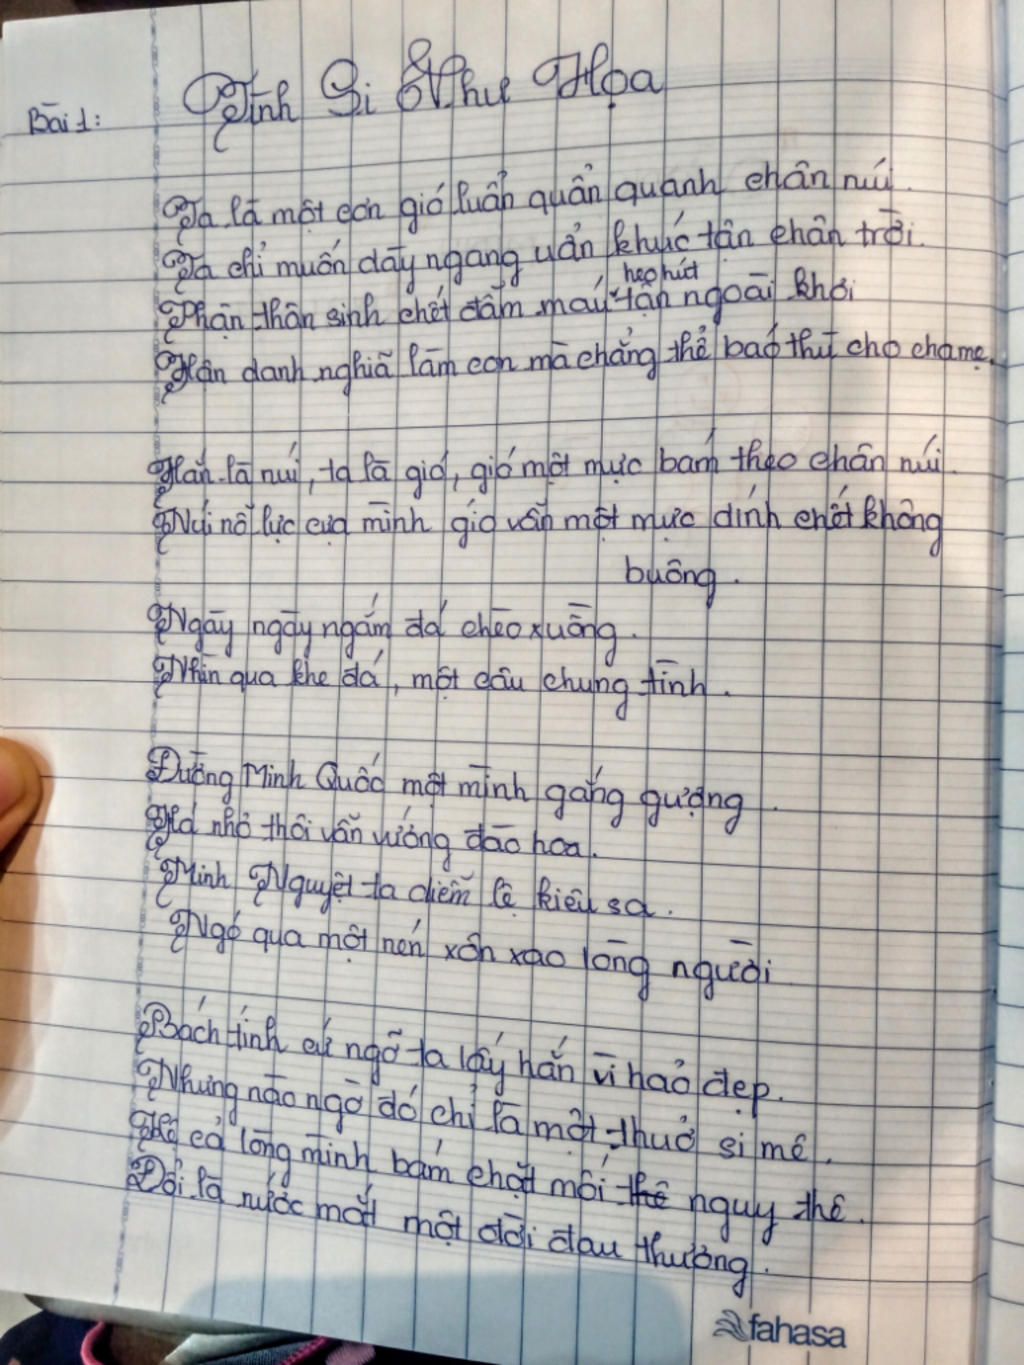 Bài 1:
Tình Si Như Họa
Ta là một cơn gió luẩn quẩn quanh chân núi.
Ta chỉ muốn dãy ngang uẩn khúc tận chân trời.
heo hút
Phận thân sinh chết đẫm máu tận ngoài khơi
Hận danh nghĩa làm con mà chẳng thể báo thù cho cha mẹ.
Hắn là núi, ta là gió, gió một mực bám theo chân núi.
Núi nỗ lực cựa mình gió vẫn một mực dính chết không
buông.
Ngày ngày ngắm đá chèo xuồng.
Nhìn qua khe đá, một câu chung tình.
Đường Minh Quốc một mình gắng gượng.
Hà nhỏ thôi vẫn vướng đào hoa.
Minh Nguyệt ta diễm lệ kiêu sa.
Ngó qua một nén xôn xao lòng người
Bách tính cứ ngỡ ta lấy hắn vì hảo đẹp.
Nhưng nào ngờ đó chỉ là một thuở si mê.
cả lòng mình bám chặt mối nguy thê.
Đổi là nước mắt một đời đau thương.
fahasa